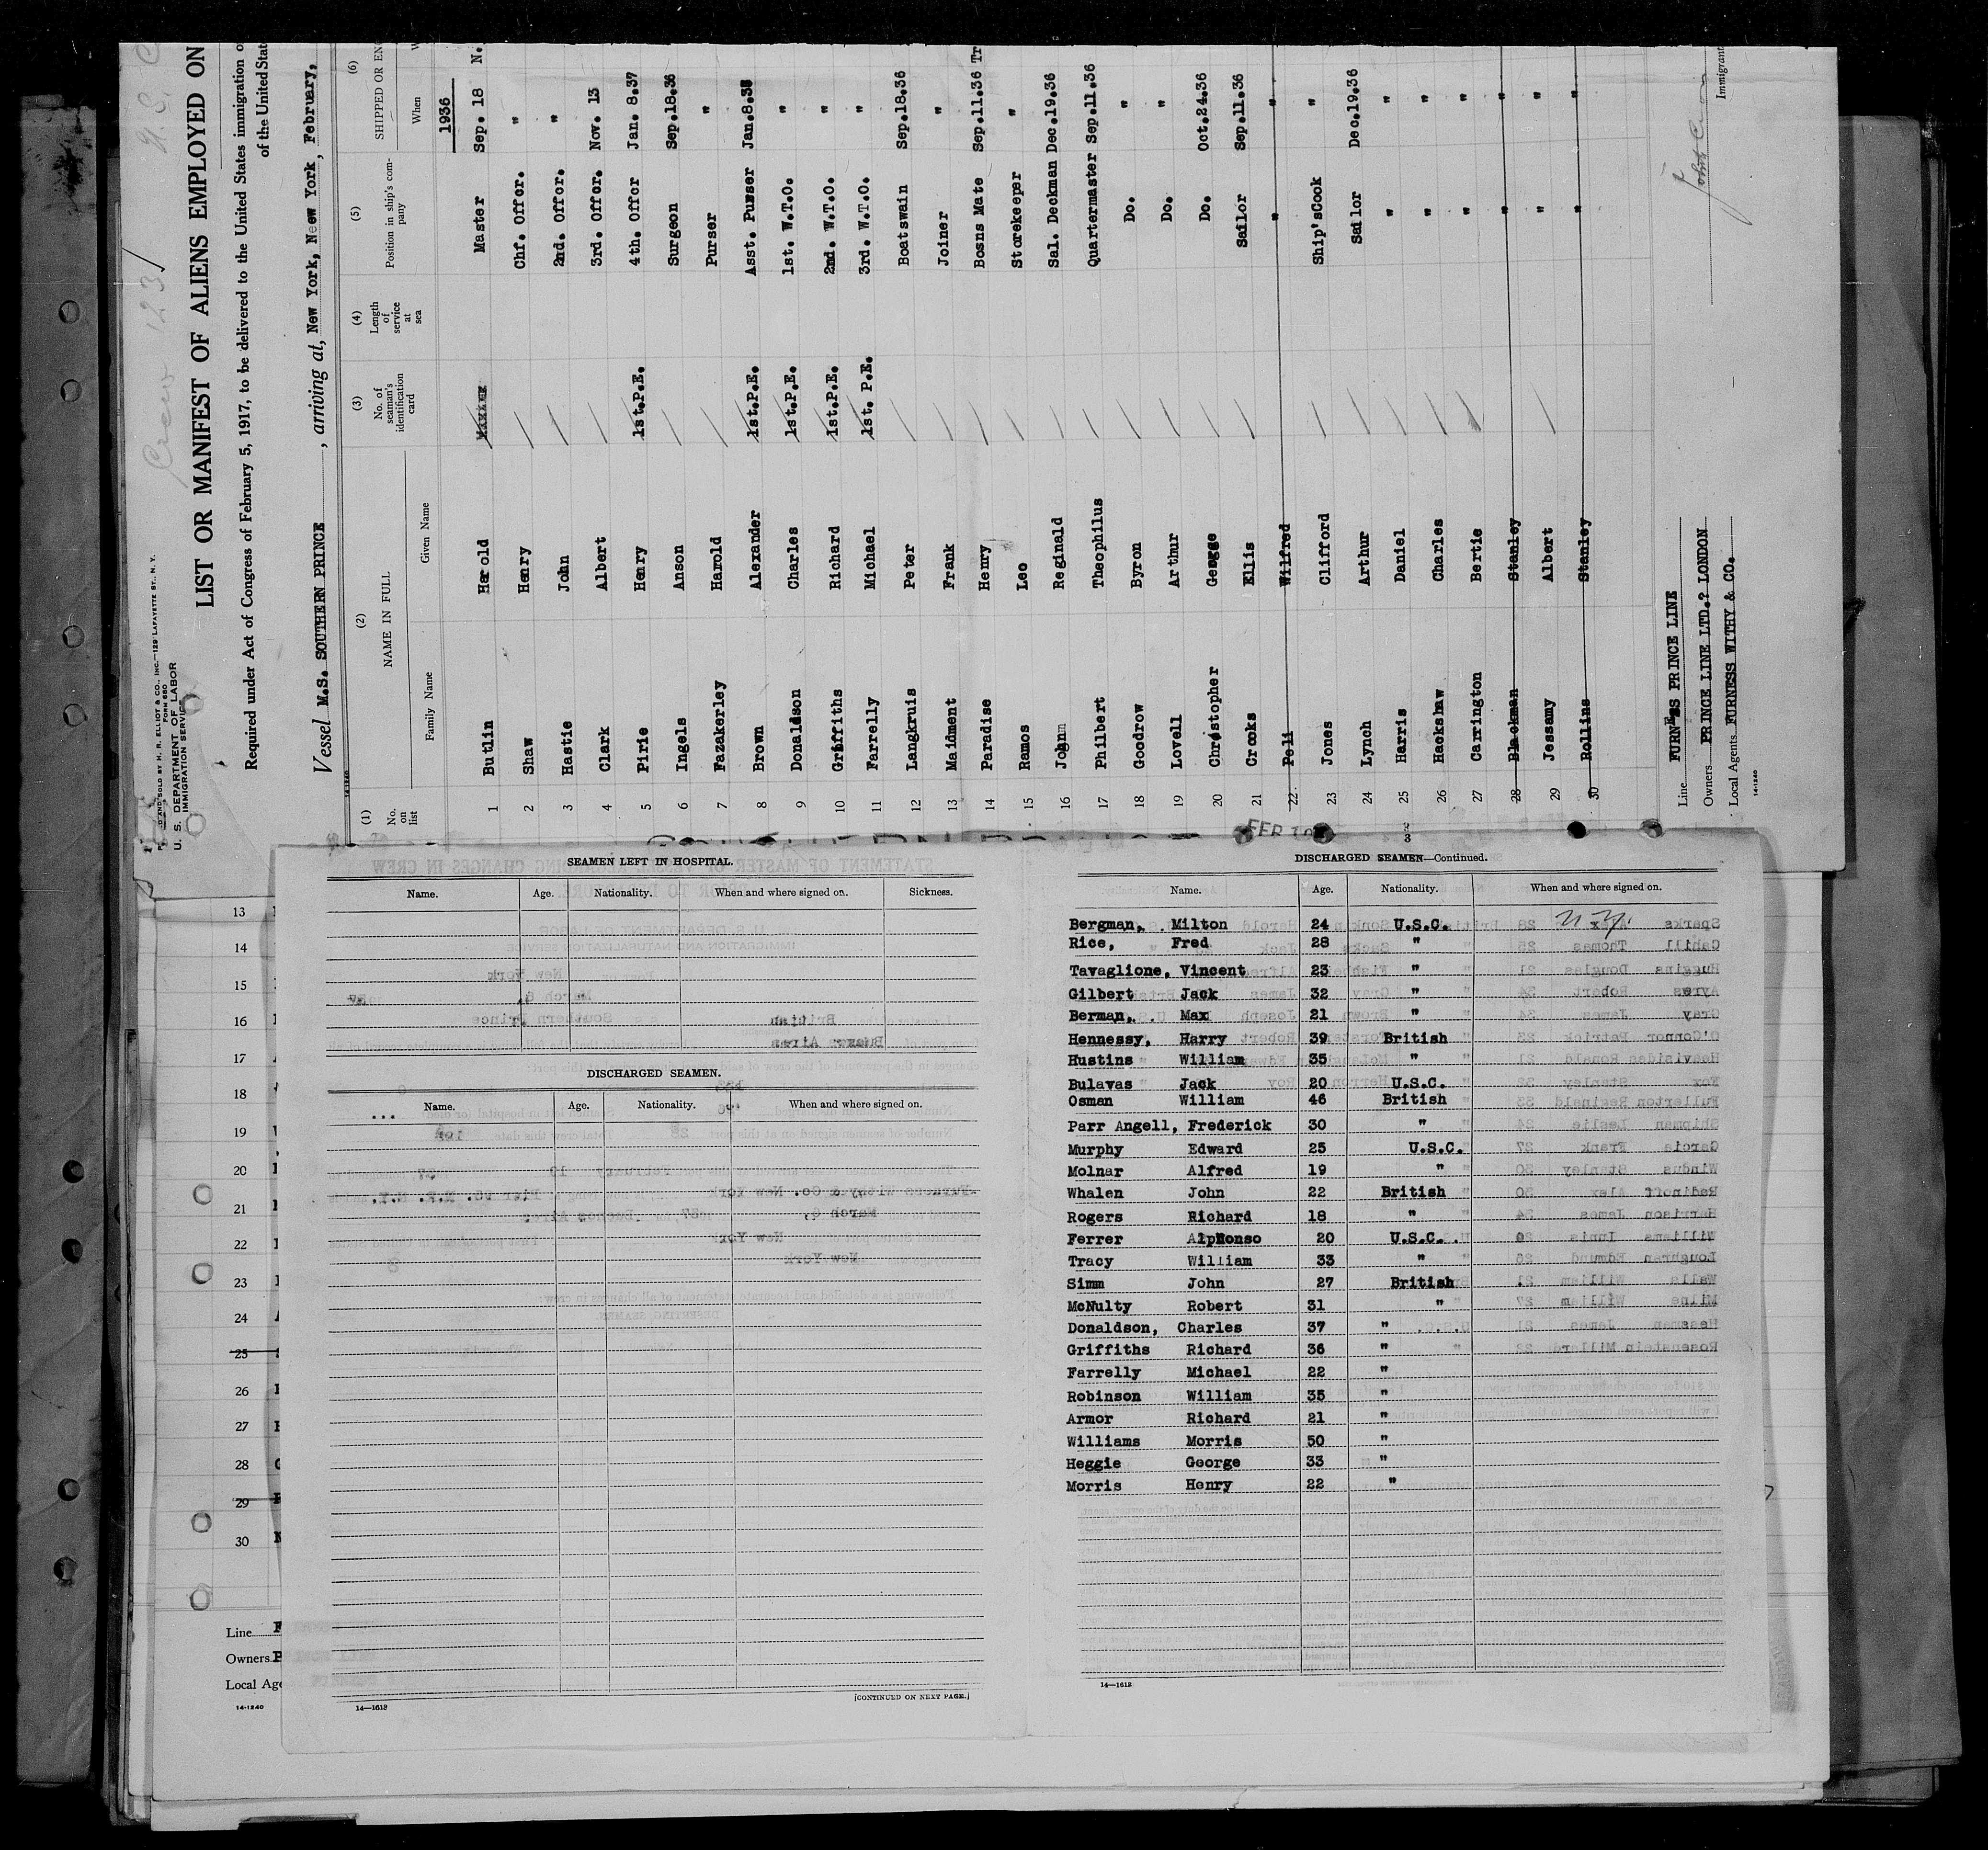 Crew 123
FORM 680
U. S. DEPARTMENT OF LABOR
IMMIGRATION SERVICE
LIST OR MANIFEST OF ALIENS EMPLOYED ON
Required under Act of Congress of February 5, 1917, to be delivered to the United States immigration
of the United State
Vessel M.S. SOUTHERN PRINCE, arriving at, New York, New York, February,
(1) (2) (3) (4) (5) (6)
No. on list NAME IN FULL No. of seaman's identification card Length of service at sea Position in ship's company SHIPPED OR ENG
Family Name Given Name When
1936
1 Butlin Harold Master Sep. 18 N.
2 Shaw Henry Chf. Offcr. "
3 Hastie John 2nd. Offcr. "
4 Clark Albert 3rd. Offcr. Nov. 13
5 Pirie Henry 1st.P.E. 4th. Offcr Jan. 8.37
6 Ingels Anson Surgeon Sep.18.36
7 Fazakerley Harold Purser "
8 Brown Alexander 1st.P.E. Asst. Purser Jan.8.38
9 Donaldson Charles 1st.P.E. 1st. W.T.O. "
10 Griffiths Richard 1st.P.E. 2nd. W.T.O. "
11 Farrelly Michael 1st. P.E. 3rd. W.T.O. "
12 Langkruis Peter Boatswain Sep.18.36
13 Maidment Frank Joiner "
14 Paradise Henry Bosns Mate Sep.11.36 Tr
15 Ramos Leo Storekeeper "
16 John Reginald Sal. Deckman Dec.19.36
17 Philbert Theophilus Quartermaster Sep.11.36
18 Goodrow Byron Do. "
19 Lovell Arthur Do. "
20 Christopher George Do. Oct.24.36
21 Crooks Ellis Sailor Sep.11.36
22 Peli Wilfred " "
23 Jones Clifford Ship'sCook "
24 Lynch Arthur Sailor Dec.19.36
25 Harris Daniel " "
26 Hackshaw Charles " "
27 Carrington Bertie " "
28 Blackman Stanley " "
29 Jessamy Albert " "
30 Rollins Stanley " "
Line FURNESS PRINCE LINE
Owners PRINCE LINE LTD.? LONDON
Local Agents FURNESS WITHY & CO.
14-1240
Immigrant
13
14
15
16
17
18
19
20
21
22
23
24
25
26
27
28
29
30
Line
Owners
Local Age
14-1240
SEAMEN LEFT IN HOSPITAL.
Name. Age. Nationality. When and where signed on. Sickness.
DISCHARGED SEAMEN.
Name. Age. Nationality. When and where signed on.
[CONTINUED ON NEXT PAGE.]
14—1613
DISCHARGED SEAMEN—Continued.
Name. Age. Nationality. When and where signed on.
Bergman, Milton 24 U.S.C. N.Y.
Rice, Fred 28 "
Tavaglione, Vincent 23 "
Gilbert Jack 32 "
Berman, Max 21 "
Hennessy, Harry 39 British
Hustins William 35 "
Bulavas Jack 20 U.S.C.
Osman William 46 British
Parr Angell, Frederick 30 "
Murphy Edward 25 U.S.C.
Molnar Alfred 19 "
Whalen John 22 British
Rogers Richard 18 "
Ferrer Alphonso 20 U.S.C.
Tracy William 33 "
Simm John 27 British
McNulty Robert 31 "
Donaldson, Charles 37 "
Griffiths Richard 36 "
Farrelly Michael 22 "
Robinson William 35 "
Armor Richard 21 "
Williams Morris 50 "
Heggie George 33 "
Morris Henry 22 "
14—1613